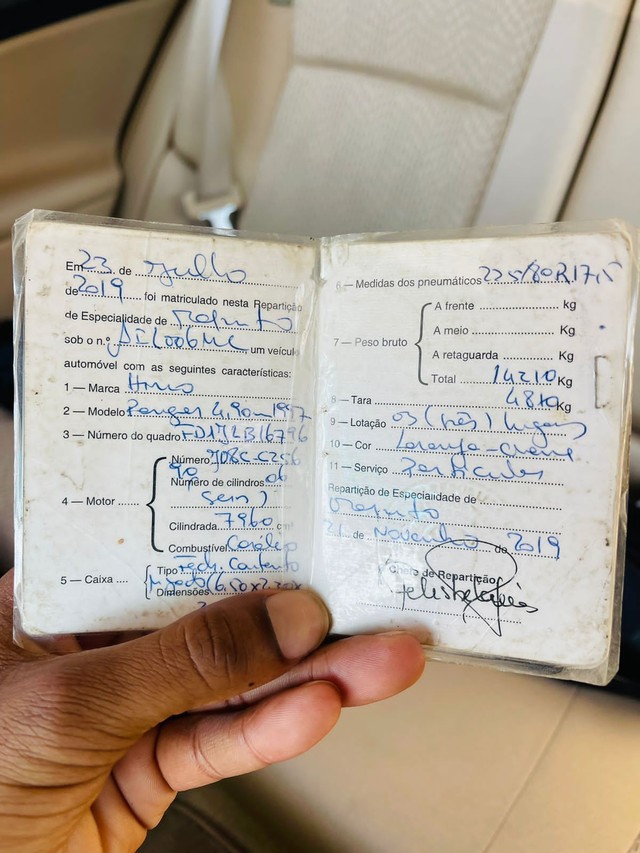 Em 23 de Julho
de 2019 foi matriculado nesta Repartição
de Especialidade de
sob o n.º um veículo
automóvel com as seguintes características:
1 — Marca Hino
2 — Modelo Ranger 1997
3 — Número do quadro FD1J2B16796
4 — Motor
Número
Número de cilindros 06
(seis)
Cilindrada 7960 cm
Combustível Gasóleo
5 — Caixa
Tipo
Dimensões
6 — Medidas dos pneumáticos 225/80R17.5
7 — Peso bruto
A frente Kg
A meio Kg
A retaguarda Kg
Total 14210 Kg
8 — Tara Kg
9 — Lotação 03 (três) lugares
10 — Cor Laranja-creme
11 — Serviço Particular
Repartição de Especialidade de
21 de Novembro de 2019
O Chefe de Repartição